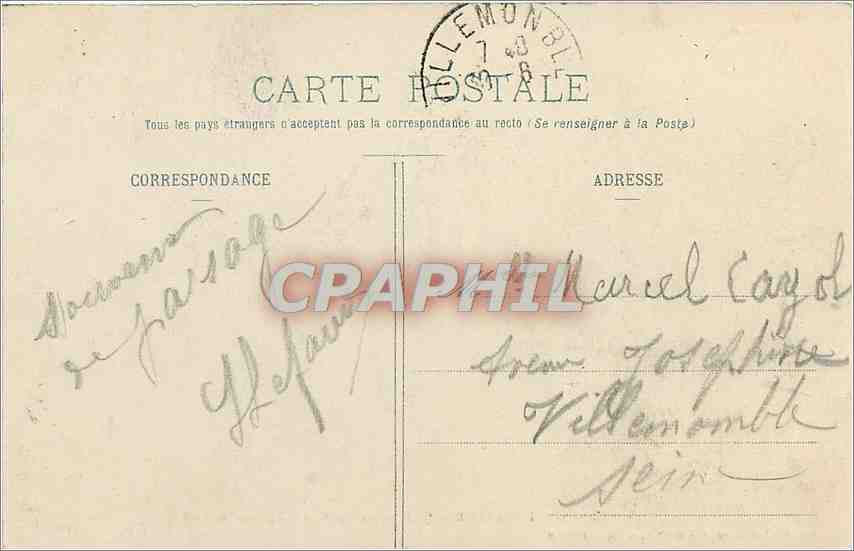 VILLEMONBLE
7 40
3 - 6
CARTE POSTALE
Tous les pays étrangers n'acceptent pas la correspondance au recto (Se renseigner à la Poste)
CORRESPONDANCE
ADRESSE
Souvenir
de passage
CPAPHIL
Marcel Cayol
Avenue Josephine
Villemomble
Seine